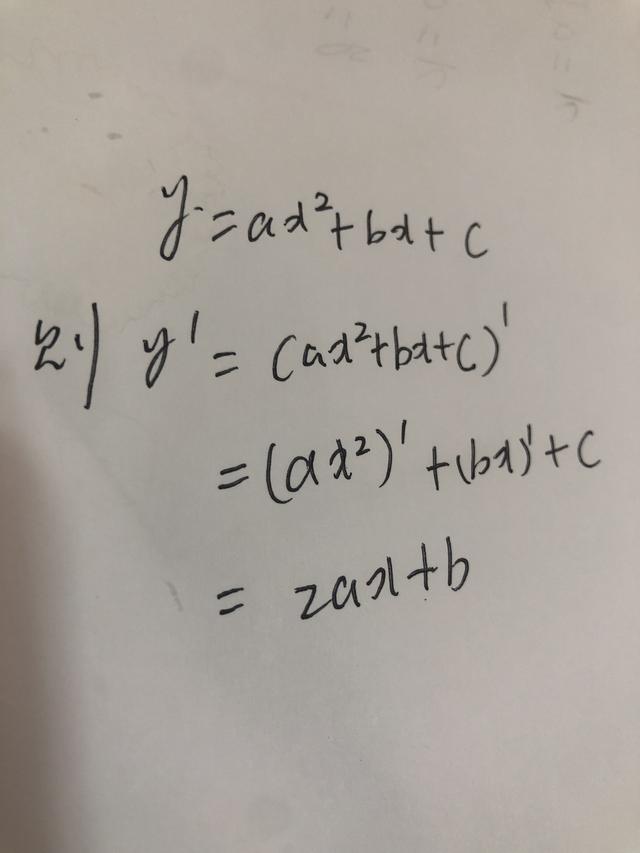 y = ax²+bx+c
则 y' = (ax²+bx+c)'
= (ax²)' + (bx)' + c
= 2ax+b